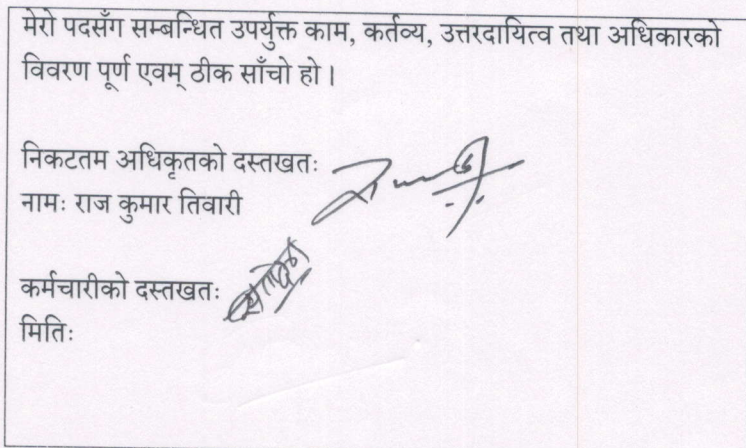 मेरो पदसँग सम्बन्धित उपर्युक्त काम, कर्तव्य, उत्तरदायित्व तथा अधिकारको
विवरण पूर्ण एवम् ठीक साँचो हो ।
निकटतम अधिकृतको दस्तखतः
नामः राज कुमार तिवारी
कर्मचारीको दस्तखतः
मितिः